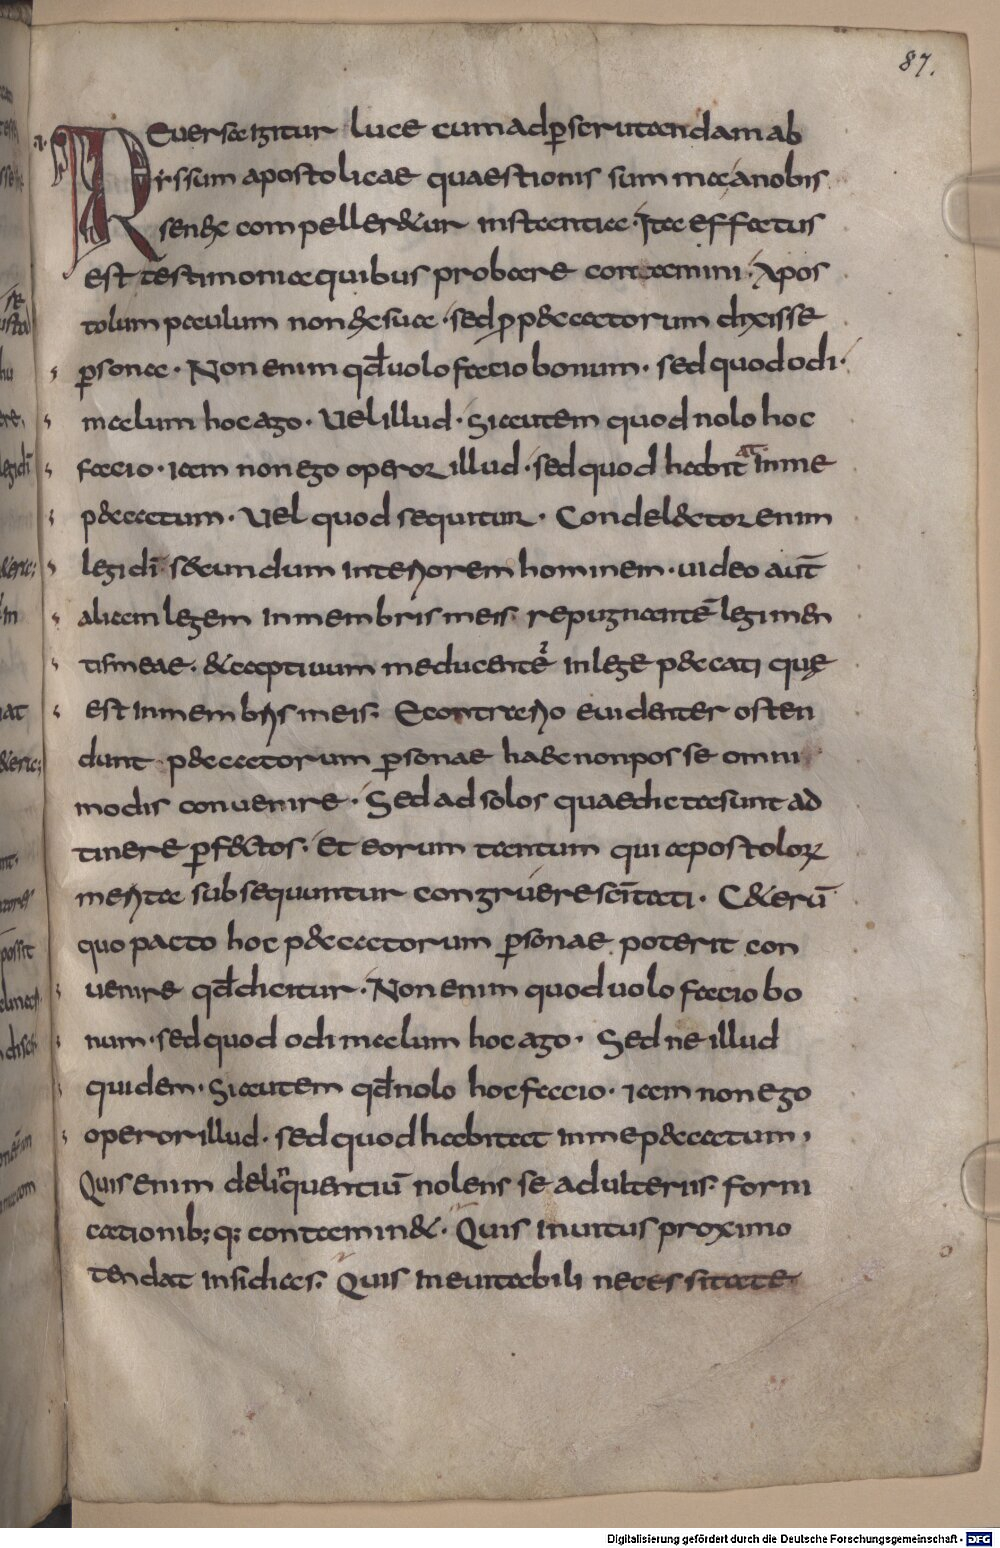 87.
Reuersa igitur luce cum adꝑscrutandam ab
yssum apostolicae quaestionis summa anobis
senex compelleretur instantia. Ita effatus
est testimonia quibus probare contamini. Apos
tolum paulum non exsua. sed ꝓ peccatorum dixisse
ꝑsona. Non enim qđ uolo facio bonum. sed quod odi.
malum hoc ago. Uel illud. Siautem quod nolo hoc
facio. iam non ego operor illud. sed quod habitat inme
peccatum. Uel quod sequitur. Condelector enim
legi dī secundum interiorem hominem. uideo aut̄
aliam legem inmembris meis repugnantē legi men
tis meae. & captiuum meducentē inlege peccati quę
est inmembris meis. Econtrario euidenter osten
dunt peccatorum ꝑsonae haec nonposse omni
modis conuenire. Sed ad solos quae dicta sunt ad
tinere ꝑfectos. Et eorum tantum qui apostoloꝝ
merita subsequuntur congruere scītati. Ceterū
quo pacto hoc peccatorum ꝑsonae poterit con
uenire qđ dicitur. Non enim quod uolo facio bo
num. sed quod odi malum hoc ago. Sed ne illud
quidem. Siautem qđ nolo hoc facio. iam non ego
operor illud. sed quod habitat inme peccatum,
Quis enim delinquentiū nolens se adulteriis. forni
cationib; q; contaminet. Quis inuitus proximo
tendat insidias. Quis ineuitabili necessitate
Digitalisierung gefördert durch die Deutsche Forschungsgemeinschaft - DFG